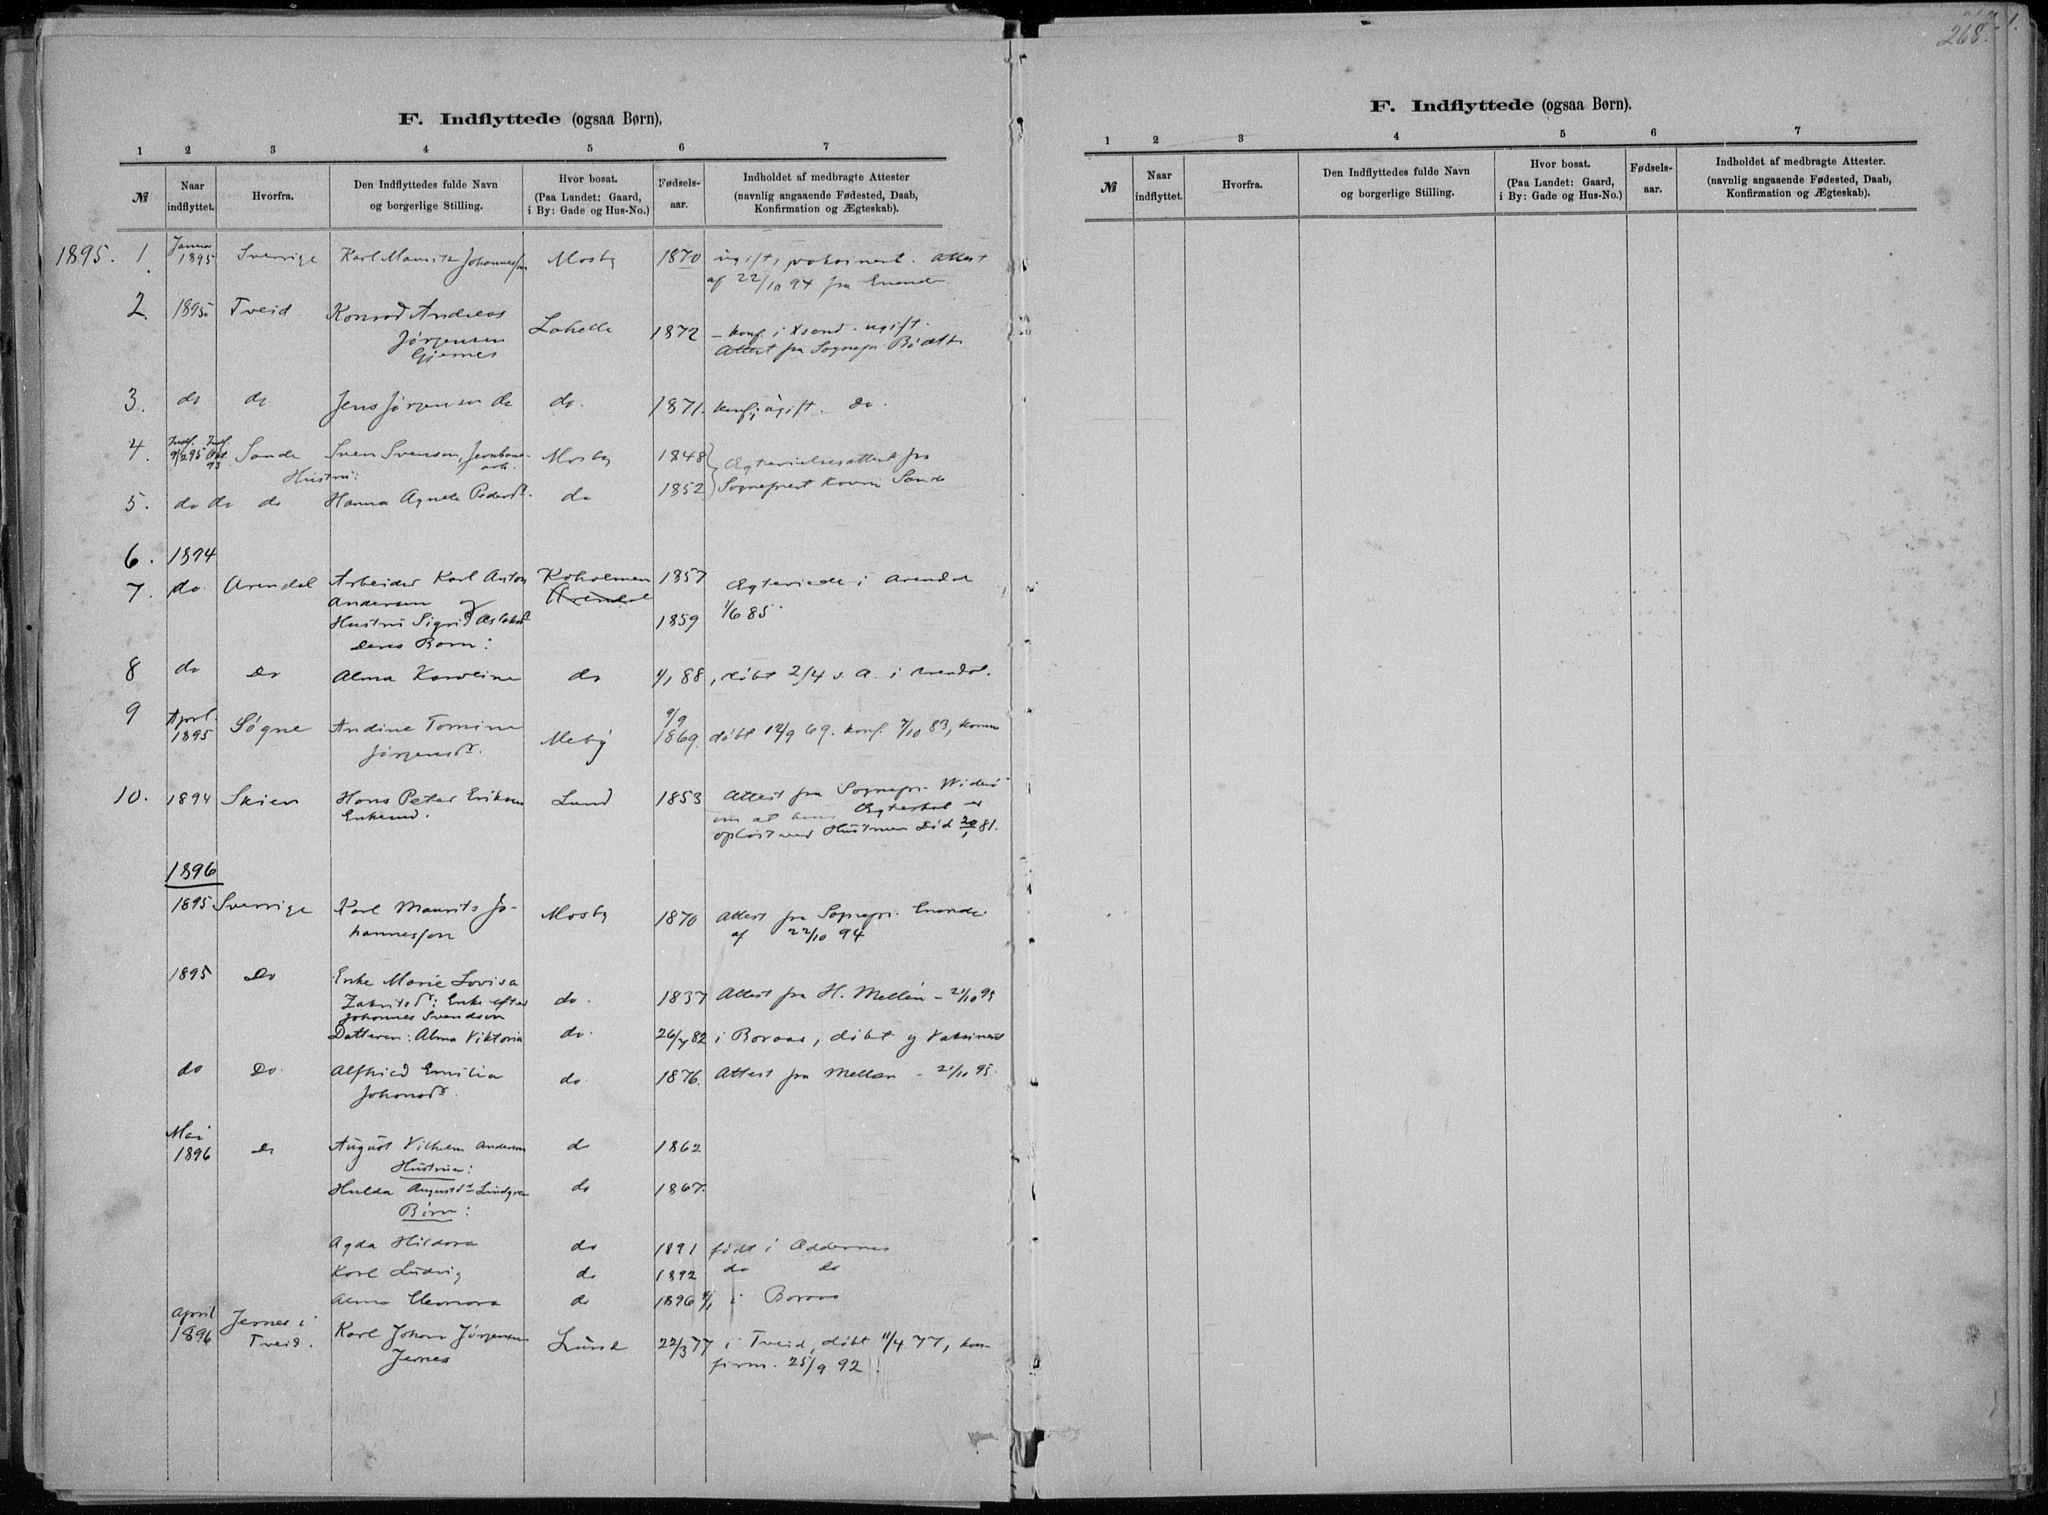 F. Indflyttede (ogsaa Børn).
1 2 3 4 5 6 7
№ Naar indflyttet. Hvorfra. Den Indflyttedes fulde Navn og borgerlige Stilling. Hvor bosat. (Paa Landet: Gaard, i By: Gade og Hus-No.) Fødselsaar. Indholdet af medbragte Attester (navnlig angaaende Fødested, Daab, Konfirmation og Ægteskab).
1895. 1. 1895 Sverrige Karl Mauritz Johannesson Mosby 1870 ugift, vaksinert. Attest
af 22/10 94 fra
2. 1895 Tveid Konrad Andreas
Jørgensen
Gjernes 1872 konf. i Xsand. ugift.
Attest fra Sognepr
3. do do Jens Jørgensen do do. 1871. konf., ugift. Do.
4. Sande Sven Svenson, Mosby 1848 Ægtevielsesattest fra
Hustru: 1852 Sognepræst Sande
5. do do do Hanna Agnete Pedersdt. do
6. 1894
7. do. Arendal Arbeider Karl Anton Koholmen 1857 Ægteviede i Arendal
Andersen og Arendal
Hustru Sigrid 1859 1/6 85.
Deres Børn:
8 do Do Alma Karoline do 88, døbt 2/4 s. A. i Arendal.
9 April 1895 Søgne Andine Tomine
Jørgensdt. Meby 9/9 1869. døbt 12/9 69. konf. 7/10 83,
10. 1894 Skien Hans Peter Eriksen Lund 1853 Attest fra Sognepr.
Enkemd. om at hans Ægteskab er
opløst ved Hustruens Død 20/1 81.
1896
1895 Sverrige Karl Maurits Jo-
hannesson Mosby 1870 Attest fra Sognepr.
af 22/10 94
1895 Do Enke Marie Lovisa
Enke efter do. 1837 Attest fra H. Mellén - 21/10 95
Johannes Svendson
Datteren: Alma Viktoria do. 82 i Boraas, døbt og Vaksinert
do Do Alfhild Emilia do. 1876. Attest fra Mellen - 21/10 95.
Johansdt.
Mai 1896 do August Vilhelm Andersen do 1862
Hustruen:
Hulda Augustdt. Lindgren do 1867.
Børn:
Agda Hildora do 1891 født i Oddernes
Karl Ludvig do 1892 do do
Alma Eleonora do 1896 i Boraas
April 1896 Jernes i Tveid. Karl Johan Jørgensen Lund 22/3 77 i Tveid, døbt 11/4 77, kon-
Jernes firm. 25/9 92.
268.
F. Indflyttede (ogsaa Børn).
1 2 3 4 5 6 7
№ Naar indflyttet. Hvorfra. Den Indflyttedes fulde Navn og borgerlige Stilling. Hvor bosat. (Paa Landet: Gaard, i By: Gade og Hus-No.) Fødselsaar. Indholdet af medbragte Attester. (navnlig angaaende Fødested, Daab, Konfirmation og Ægteskab).